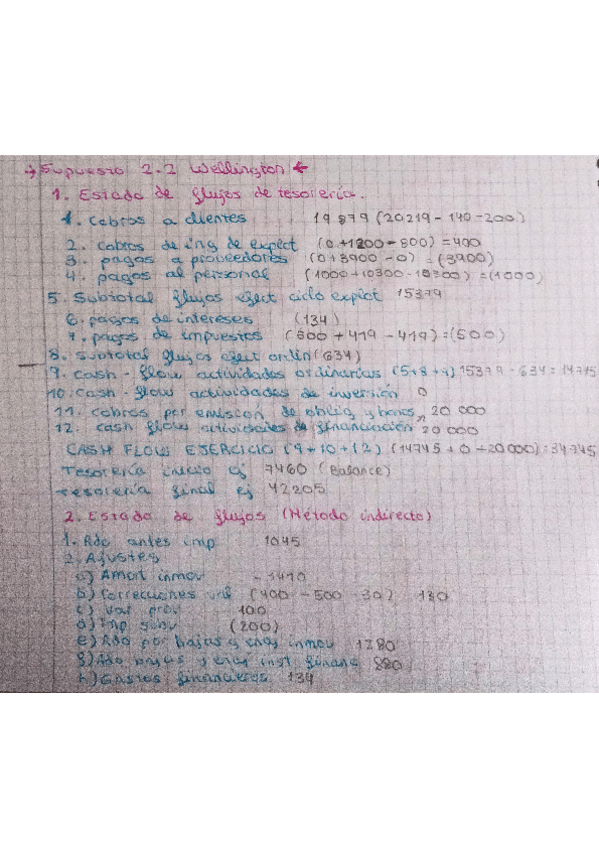 → Supuesto 2.2 Wellington ←
1. Estado de flujos de tesorería.
1. Cobros a clientes 19879 (20219 - 140 - 200)
2. cobros de ing de explot (0 + 1200 - 800) = 400
3. pagos a proveedores (0 + 3900 - 0) = (3900)
4. pagos al personal (1000 + 10300 - 10300) = (1000)
5. Subtotal flujos efect ciclo explot 15379
6. pagos de intereses (134)
7. pagos de impuestos (500 + 419 - 419) = (500)
8. subtotal flujos efect ordin (634)
9. Cash-flow actividades ordinarias (5+8+9) 15379 - 634 = 14745
10. Cash-flow actividades de inversión 0
11. cobros por emision de oblig y bonos 20 000
12. cash flow actividades de financiación 20 000
CASH FLOW EJERCICIO (9+10+12) (14745 + 0 + 20 000) = 34.745
Tesorería inicio ej 7460 (Balance)
Tesorería final ej 42205
2. Estado de flujos (Método indirecto)
1. Rdo antes imp 1045
2. Ajustes
a) Amort inmov - 1410
b) Correcciones val (400 - 500 - 30) 130
c) Var prov 100
d) Imp subv (200)
e) Rdo por bajas y enaj inmov 1280
g) Rdo bajas y enaj inst financ 880
h) Gastos financieros 134